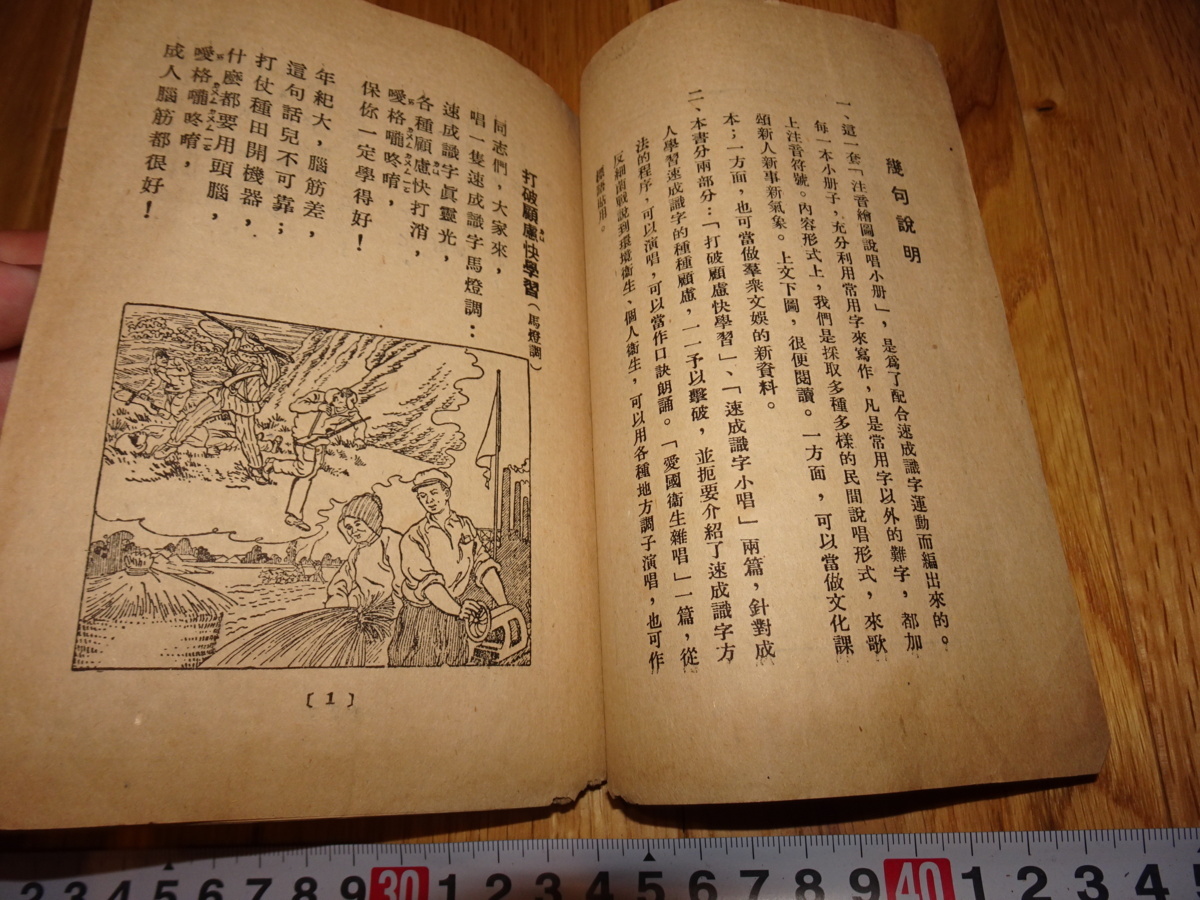 幾句說明
一、這一套「注音繪圖說唱小册」，是爲了配合速成識字運動而編出來的。
每一本小册子，充分利用常用字來寫作，凡是常用字以外的難字，都加
上注音符號。內容形式上，我們是採取多種多樣的民間說唱形式，來歌
頌新人新事新氣象。上文下圖，很便閱讀。一方面，可以當做文化課
本；一方面，也可當做羣衆文娛的新資料。
二、本書分兩部分：「打破顧慮快學習」、「速成識字小唱」兩篇，針對成
人學習速成識字的種種顧慮，一一予以擊破，並扼要介紹了速成識字方
法的程序，可以演唱，可以當作口訣朗誦。「愛國衞生雜唱」一篇，從
反細菌戰說到環境衞生、個人衞生，可以用各種地方調子演唱，也可作
標語貼用。
打破顧慮快學習（馬燈調）
同志們，大家來，
唱一隻速成識字馬燈調：
速成識字眞靈光，
各種顧慮快打消，
噯格嚨咚唷，
保你一定學得好！
年紀大，腦筋差，
這句話兒不可靠；
打仗種田開機器，
什麼都要用頭腦，
噯格嚨咚唷，
成人腦筋都很好！
〔1〕
2 3 4 5 6 7 8 9 30 1 2 3 4 5 6 7 8 9 40 1 2 3 4 5